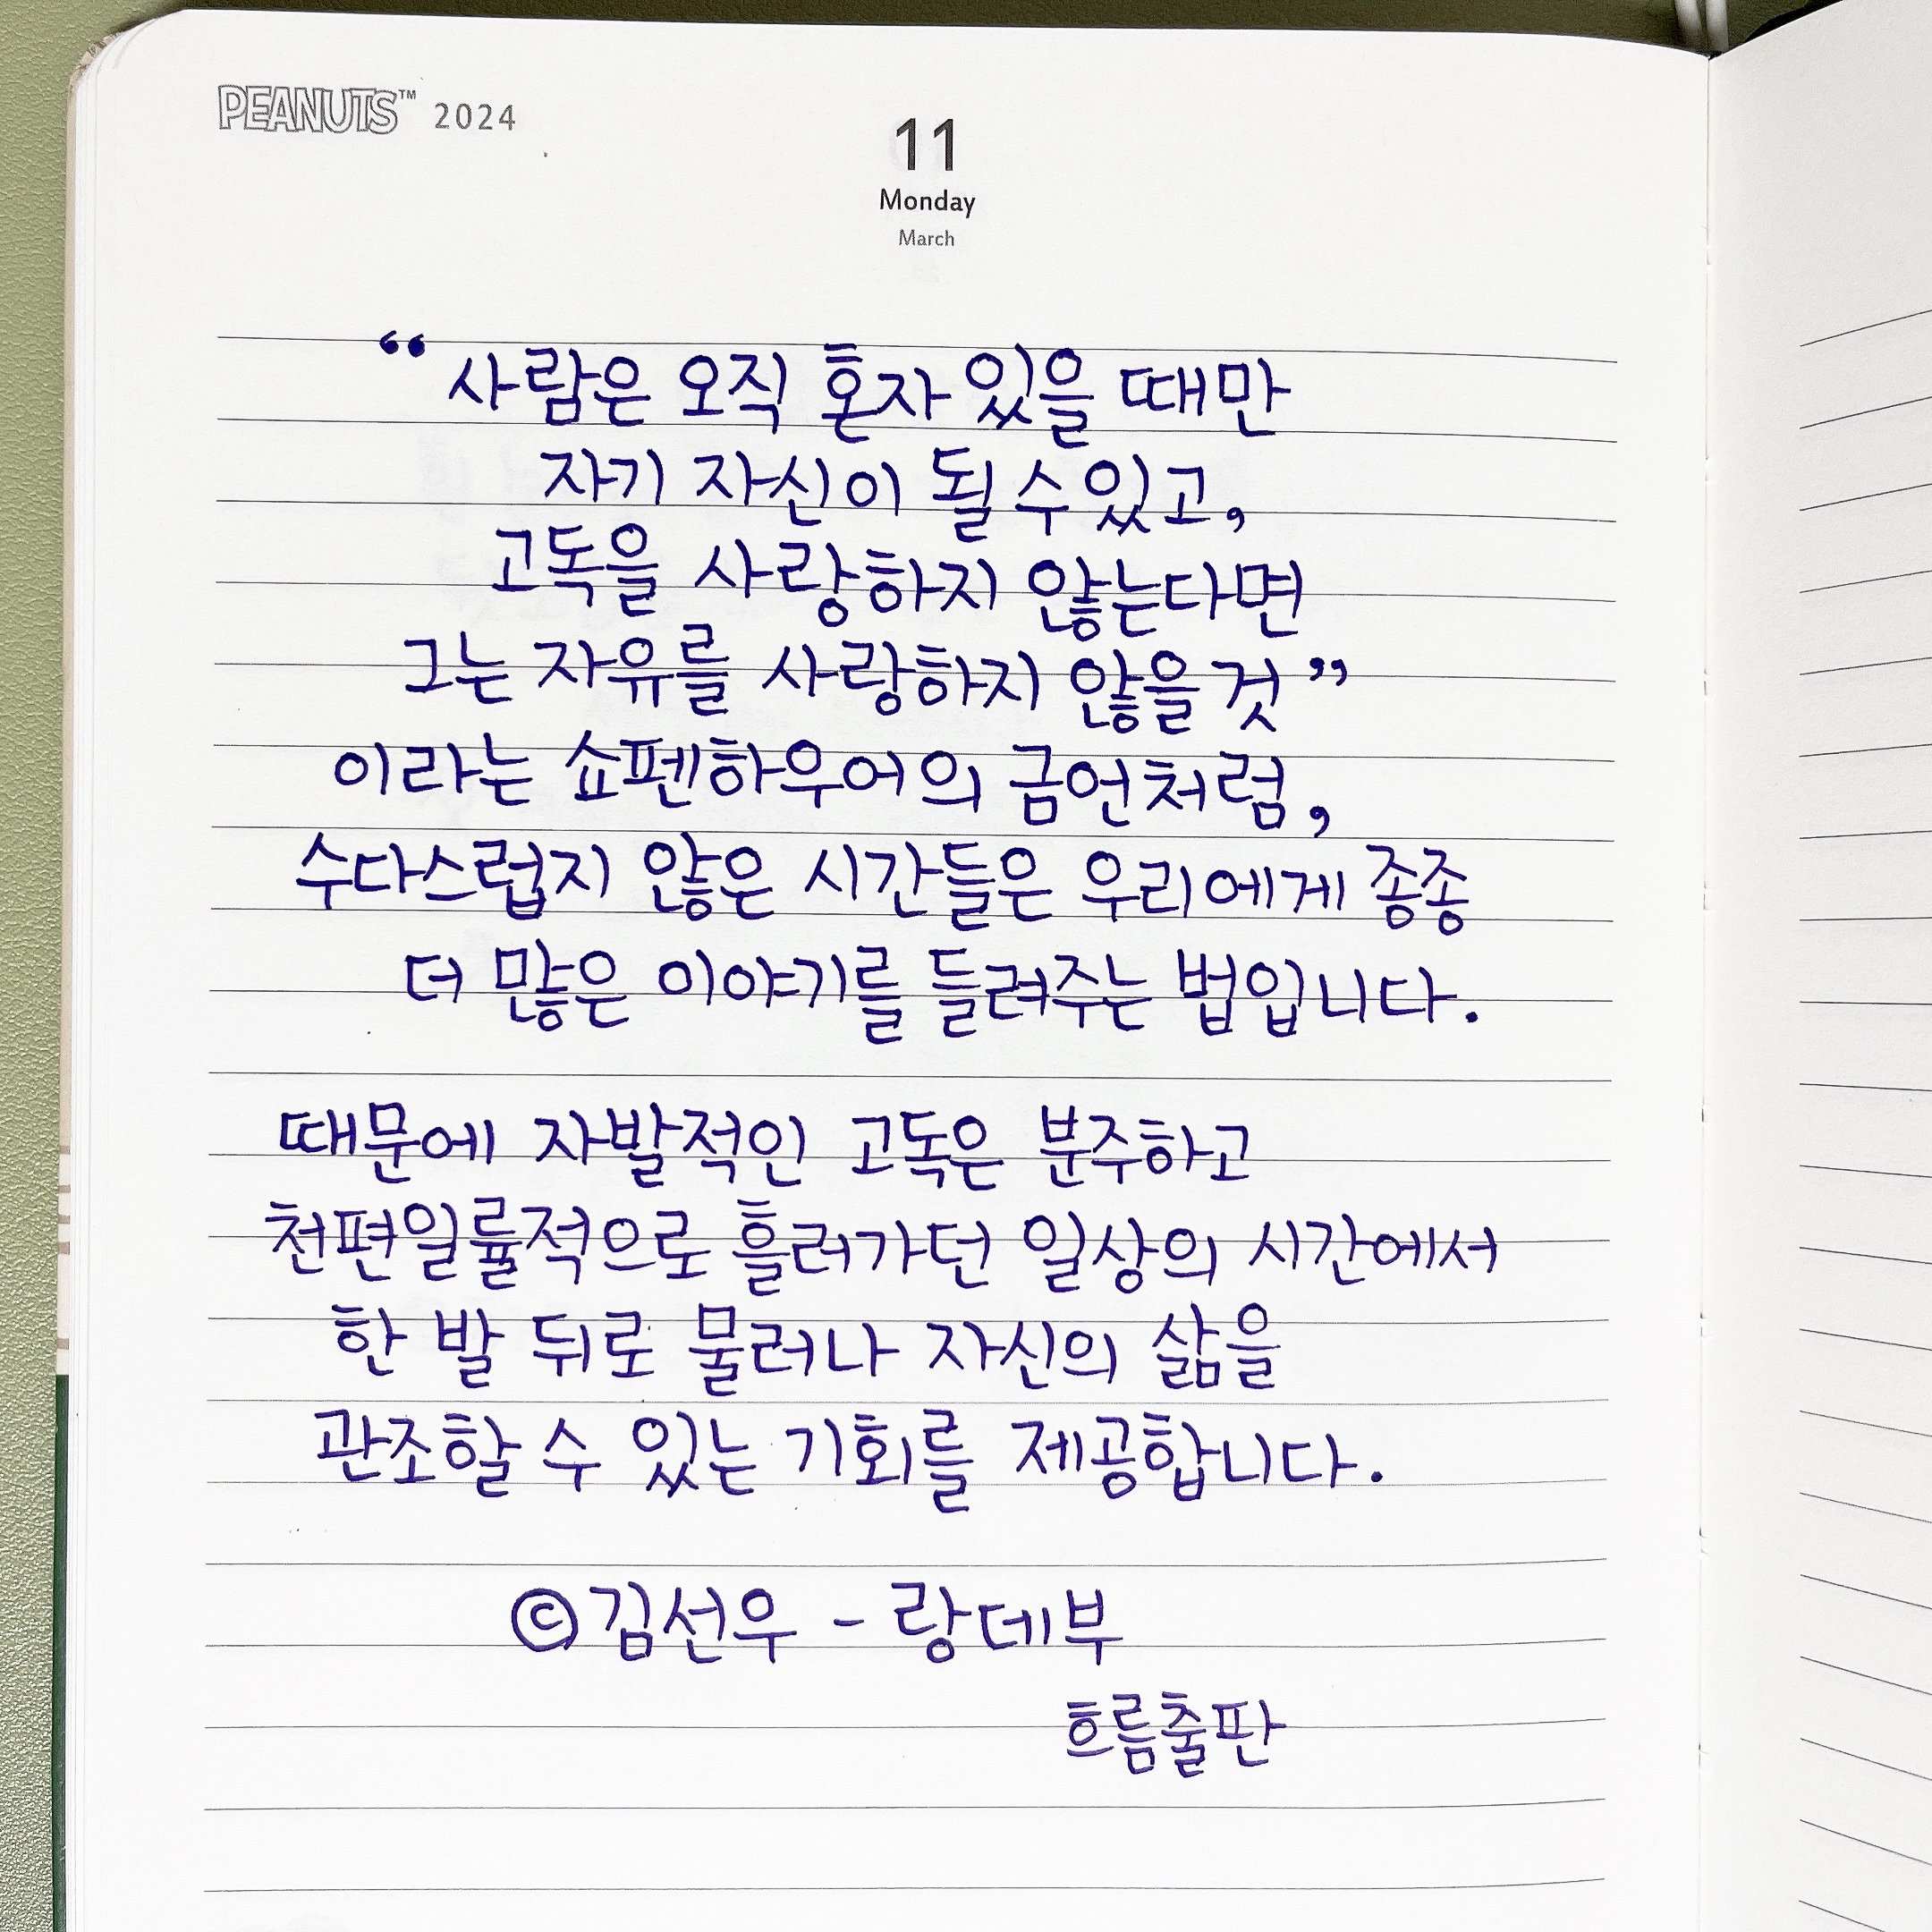 PEANUTS™ 2024
11
Monday
March
“사람은 오직 혼자 있을 때만
자기 자신이 될 수 있고,
고독을 사랑하지 않는다면
그는 자유를 사랑하지 않을 것”
이라는 쇼펜하우어의 금언처럼,
수다스럽지 않은 시간들은 우리에게 종종
더 많은 이야기를 들려주는 법입니다.
때문에 자발적인 고독은 분주하고
천편일률적으로 흘러가던 일상의 시간에서
한 발 뒤로 물러나 자신의 삶을
관조할 수 있는 기회를 제공합니다.
©김선우 - 랑데부
흐름출판